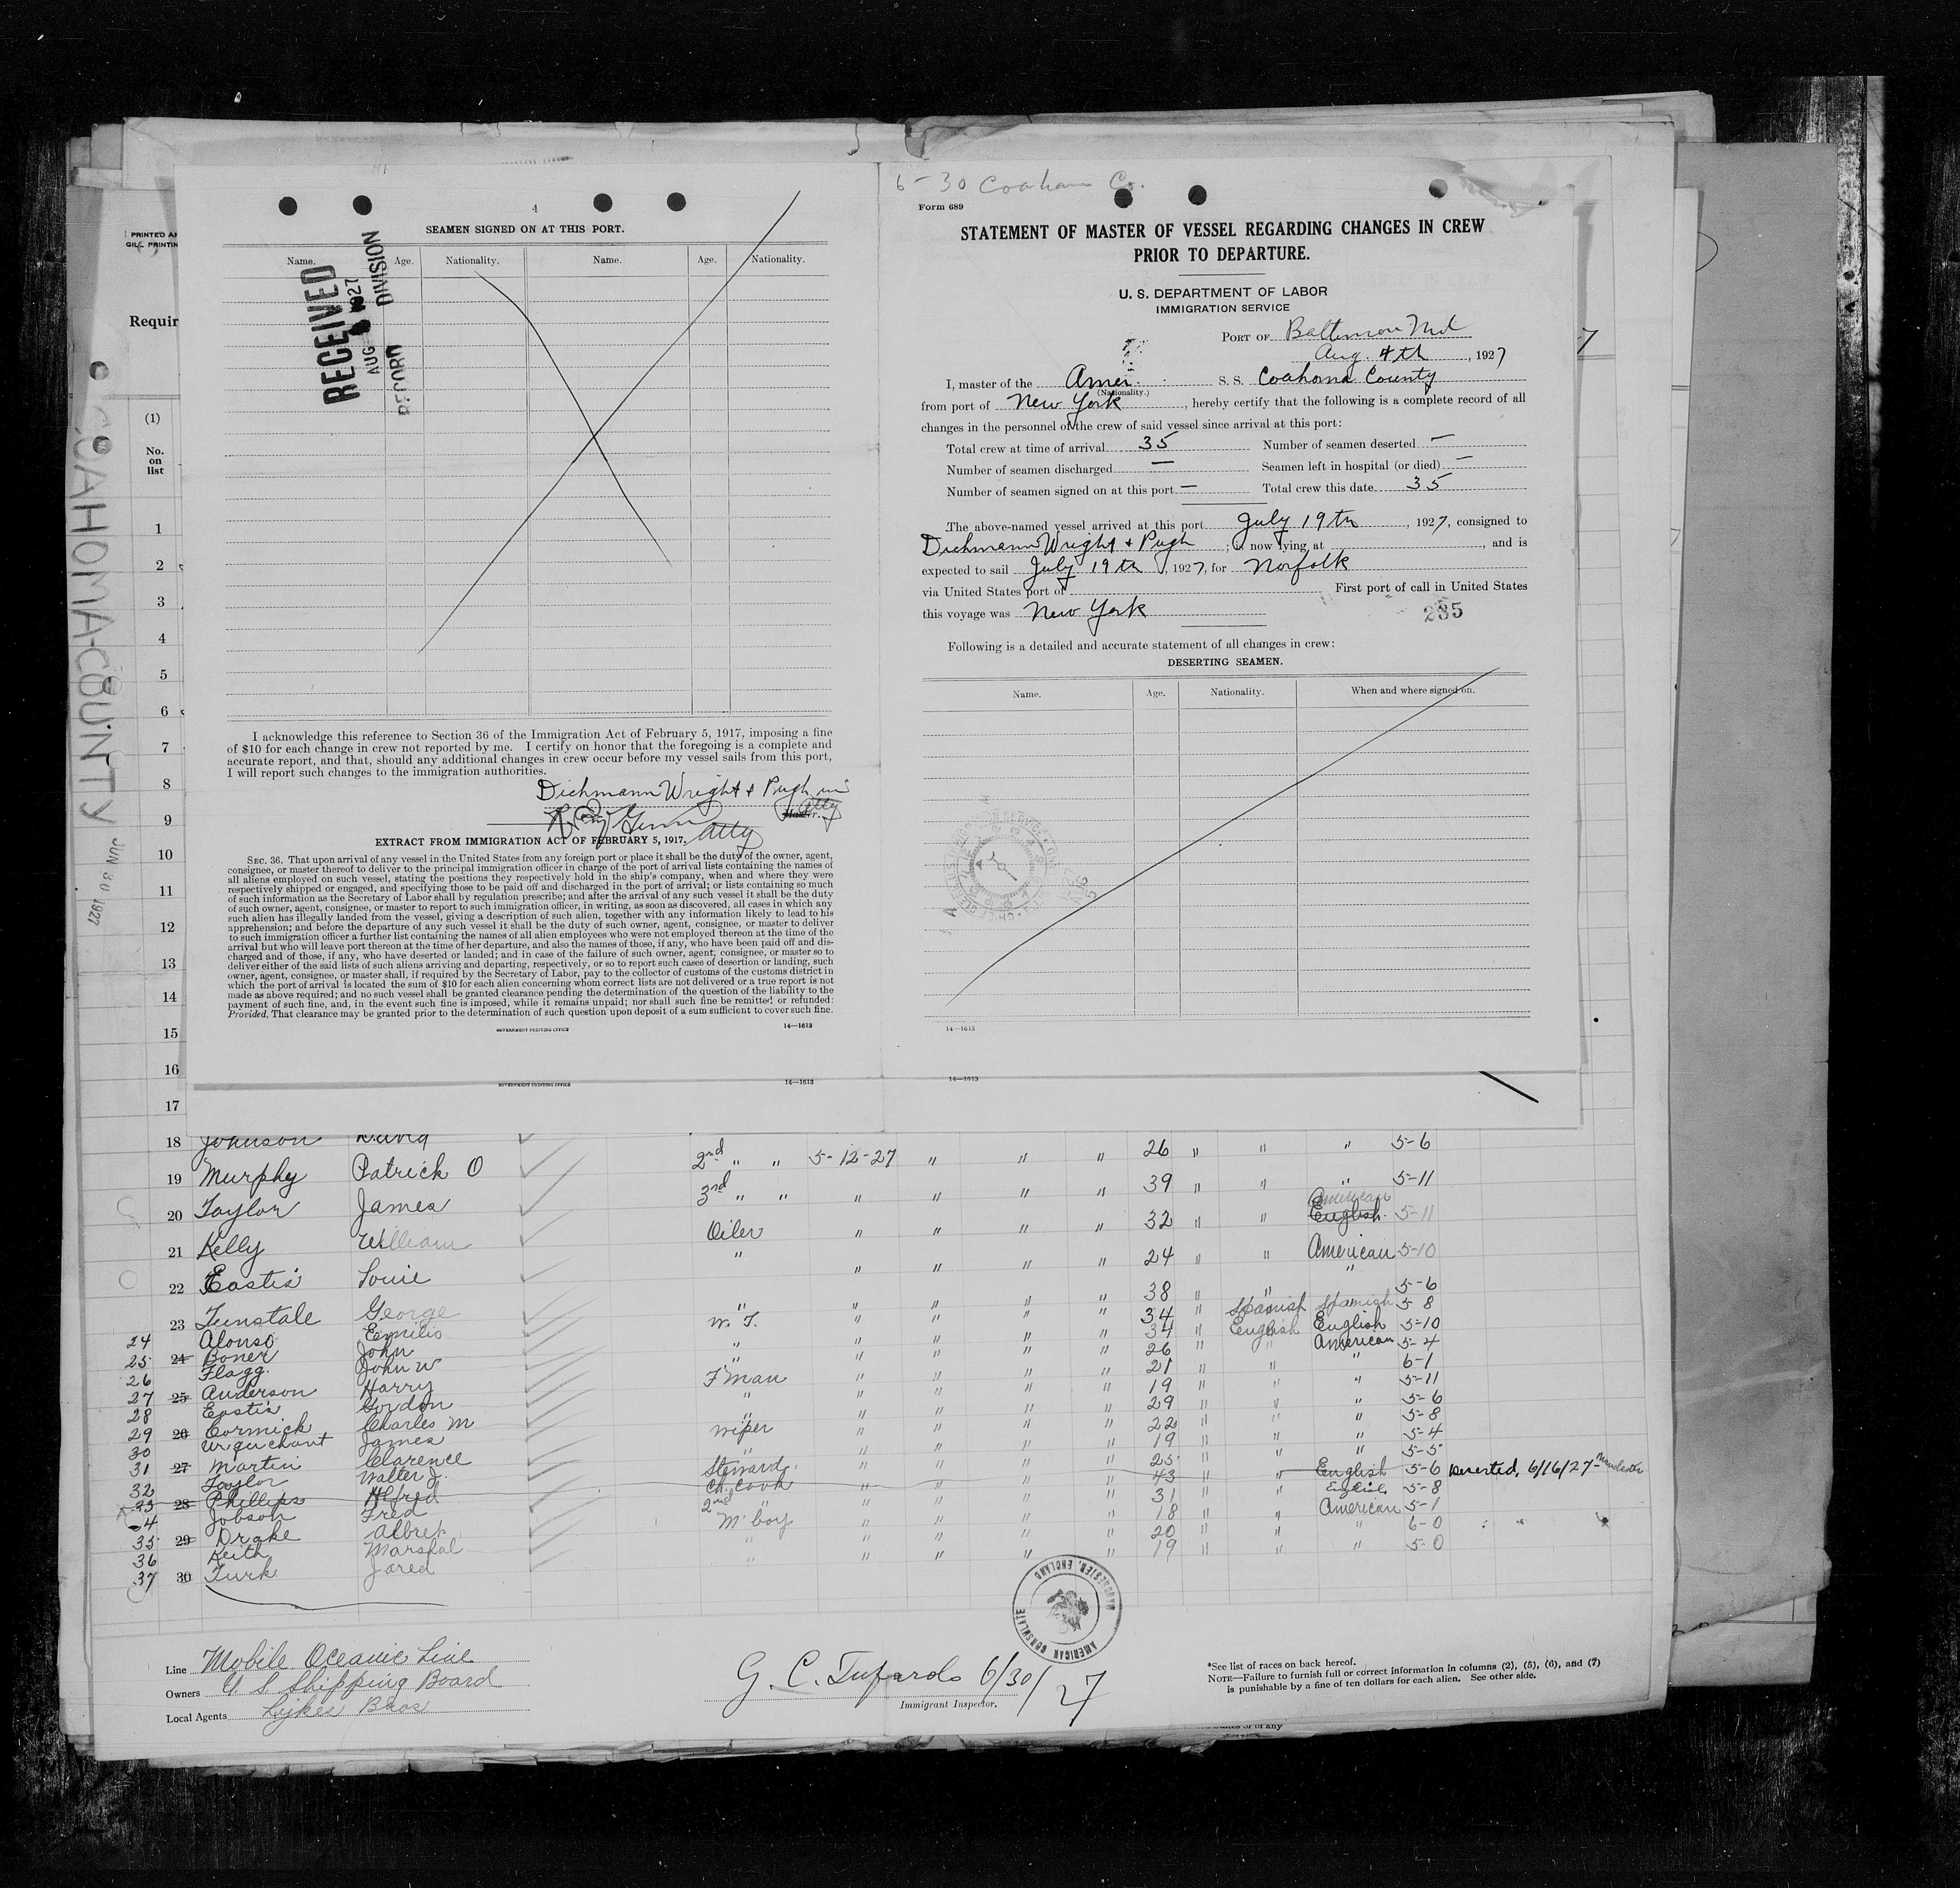 4
SEAMEN SIGNED ON AT THIS PORT.
Name. Age. Nationality. Name. Age. Nationality.
RECEIVED
AUG 1927
RECORD DIVISION
I acknowledge this reference to Section 36 of the Immigration Act of February 5, 1917, imposing a fine
of $10 for each change in crew not reported by me. I certify on honor that the foregoing is a complete and
accurate report, and that, should any additional changes in crew occur before my vessel sails from this port,
I will report such changes to the immigration authorities.
Dichmann Wright & Pugh
Atty
Master.
Atty
EXTRACT FROM IMMIGRATION ACT OF FEBRUARY 5, 1917.
SEC. 36. That upon arrival of any vessel in the United States from any foreign port or place it shall be the duty of the owner, agent,
consignee, or master thereof to deliver to the principal immigration officer in charge of the port of arrival lists containing the names of
all aliens employed on such vessel, stating the positions they respectively hold in the ship's company, when and where they were
respectively shipped or engaged, and specifying those to be paid off and discharged in the port of arrival; or lists containing so much
of such information as the Secretary of Labor shall by regulation prescribe; and after the arrival of any such vessel it shall be the duty
of such owner, agent, consignee, or master to report to such immigration officer, in writing, as soon as discovered, all cases in which any
such alien has illegally landed from the vessel, giving a description of such alien, together with any information likely to lead to his
apprehension; and before the departure of any such vessel it shall be the duty of such owner, agent, consignee, or master to deliver
to such immigration officer a further list containing the names of all alien employees who were not employed thereon at the time of the
arrival but who will leave port thereon at the time of her departure, and also the names of those, if any, who have been paid off and dis-
charged and of those, if any, who have deserted or landed; and in case of the failure of such owner, agent, consignee, or master so to
deliver either of the said lists of such aliens arriving and departing, respectively, or so to report such cases of desertion or landing, such
owner, agent, consignee, or master shall, if required by the Secretary of Labor, pay to the collector of customs of the customs district in
which the port of arrival is located the sum of $10 for each alien concerning whom correct lists are not delivered or a true report is not
made as above required; and no such vessel shall be granted clearance pending the determination of the question of the liability to the
payment of such fine, and, in the event such fine is imposed, while it remains unpaid; nor shall such fine be remitted or refunded:
Provided, That clearance may be granted prior to the determination of such question upon deposit of a sum sufficient to cover such fine.
GOVERNMENT PRINTING OFFICE 14—1613
GOVERNMENT PRINTING OFFICE 14—1613
6-30 Coaham Co.
Form 689
STATEMENT OF MASTER OF VESSEL REGARDING CHANGES IN CREW
PRIOR TO DEPARTURE.
U. S. DEPARTMENT OF LABOR
IMMIGRATION SERVICE
PORT OF Baltimore Md
Aug. 4th, 1927
I, master of the Amer. S. S. Coahoma County
(Nationality.)
from port of New York, hereby certify that the following is a complete record of all
changes in the personnel of the crew of said vessel since arrival at this port:
Total crew at time of arrival 35 Number of seamen deserted —
Number of seamen discharged — Seamen left in hospital (or died) —
Number of seamen signed on at this port — Total crew this date 35
The above-named vessel arrived at this port July 19th, 1927, consigned to
Dichmann Wright & Pugh; is now lying at , and is
expected to sail July 19th, 1927, for Norfolk
via United States port of First port of call in United States
this voyage was New York
235
Following is a detailed and accurate statement of all changes in crew:
DESERTING SEAMEN.
Name. Age. Nationality. When and where signed on.
14—1613
14—1613
COAHOMA-COUNTY JUN 30 1927
PRINTED AN
GILL PRINTIN
Requir
(1)
No.
on
list
1
2
3
4
5
6
7
8
9
10
11
12
13
14
15
16
17
18 Johnson David 2nd " " 5-12-27 " " " 26 " " " 5-6
19 Murphy Patrick O 3rd " " " " " " 39 " " " 5-11
20 Taylor James Oiler " " " " 32 " " American English 5-11
21 Kelly William " " " " " 24 " " American 5-10
22 Eastis Louie " " " " " 38 " " " 5-6
23 Tunstale George W.T. " " " " 34 " Spanish Spanish 5-8
24 Alonso Emilio " " " " " 34 " English English 5-10
25 24 Boner John " " " " " 26 " " American 5-4
26 Flagg. John W F'man " " " " 21 " " " 6-1
27 25 Anderson Harry " " " " " 19 " " " 5-11
28 Eastis Gordon " " " " " 29 " " " 5-6
29 26 Cormick Charles M wiper " " " " 22 " " " 5-8
30 Urquchart James " " " " " 19 " " " 5-4
31 27 Martin Clarence Steward. " " " " 25 " " " 5-5
32 Taylor Walter J. Ch. Cook " " " " 43 " " English 5-6 Deserted, 6/16/27- Manchester
33 28 Phillips Alfred 2nd " " " " " 31 " " English 5-8
34 Jobson Fred M'boy " " " " 18 " " American 5-1
35 29 Drake Albret " " " " " 20 " " " 6-0
36 Keith Marshal " " " " " 19 " " " 5-0
37 30 Turk Jared
AMERICAN CONSULATE
MANCHESTER, ENGLAND
Line Mobile Oceanic Line
Owners U S Shipping Board
Local Agents Lykes Bros
6/30/27
Immigrant Inspector.
*See list of races on back hereof.
NOTE—Failure to furnish full or correct information in columns (2), (5), (6), and (7)
is punishable by a fine of ten dollars for each alien. See other side.